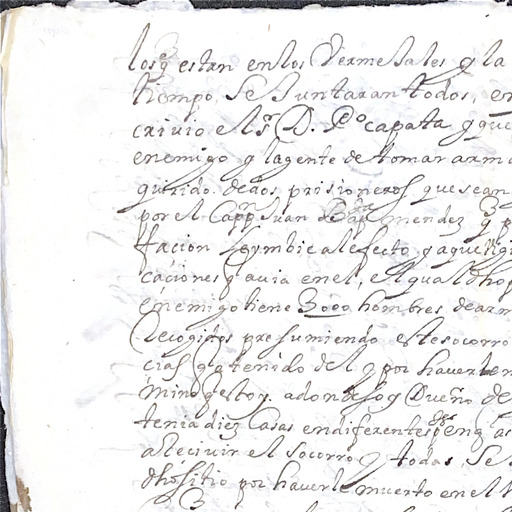 los q estan en los Vermesales y la
tiempo, se Juntaran todos, en
crivio el sr. D. Po capata y que
enemigo y la gente de tomar arma
quirido. de dos prisioneros que sean
por el Cappn Juan Bapta mendez
ymbie al efecto y aquel
caciones q avia en el, el qual dho
enemigo tiene 3000 hombres de arm
Recogidos presumiendo este socorro
cias q a tenido del y por haverle
mino q estoy. a donde soy Dueño de
tenia diez Casas en diferentes
a Recivir el socorro y todas, se
dho sitio por haverle muerto en el